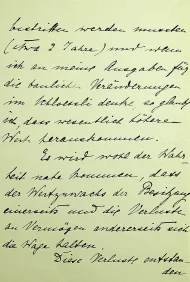 bestritten werden mussten
(etwa 2 Jahre) und wenn
ich an meine Ausgaben für
die baulich. Veränderungen
im Schlossli denke, so glaub
ich dass wesentlich höhere
Wert herauskommen.
Es wird wohl der Wahr
heit nahe kommen, dass
der Wertzuwachs der Besitzung
einerseits und die Verluste
an Vermögen andererseits sich
die Wage halten.
Diese Verluste entstan
den